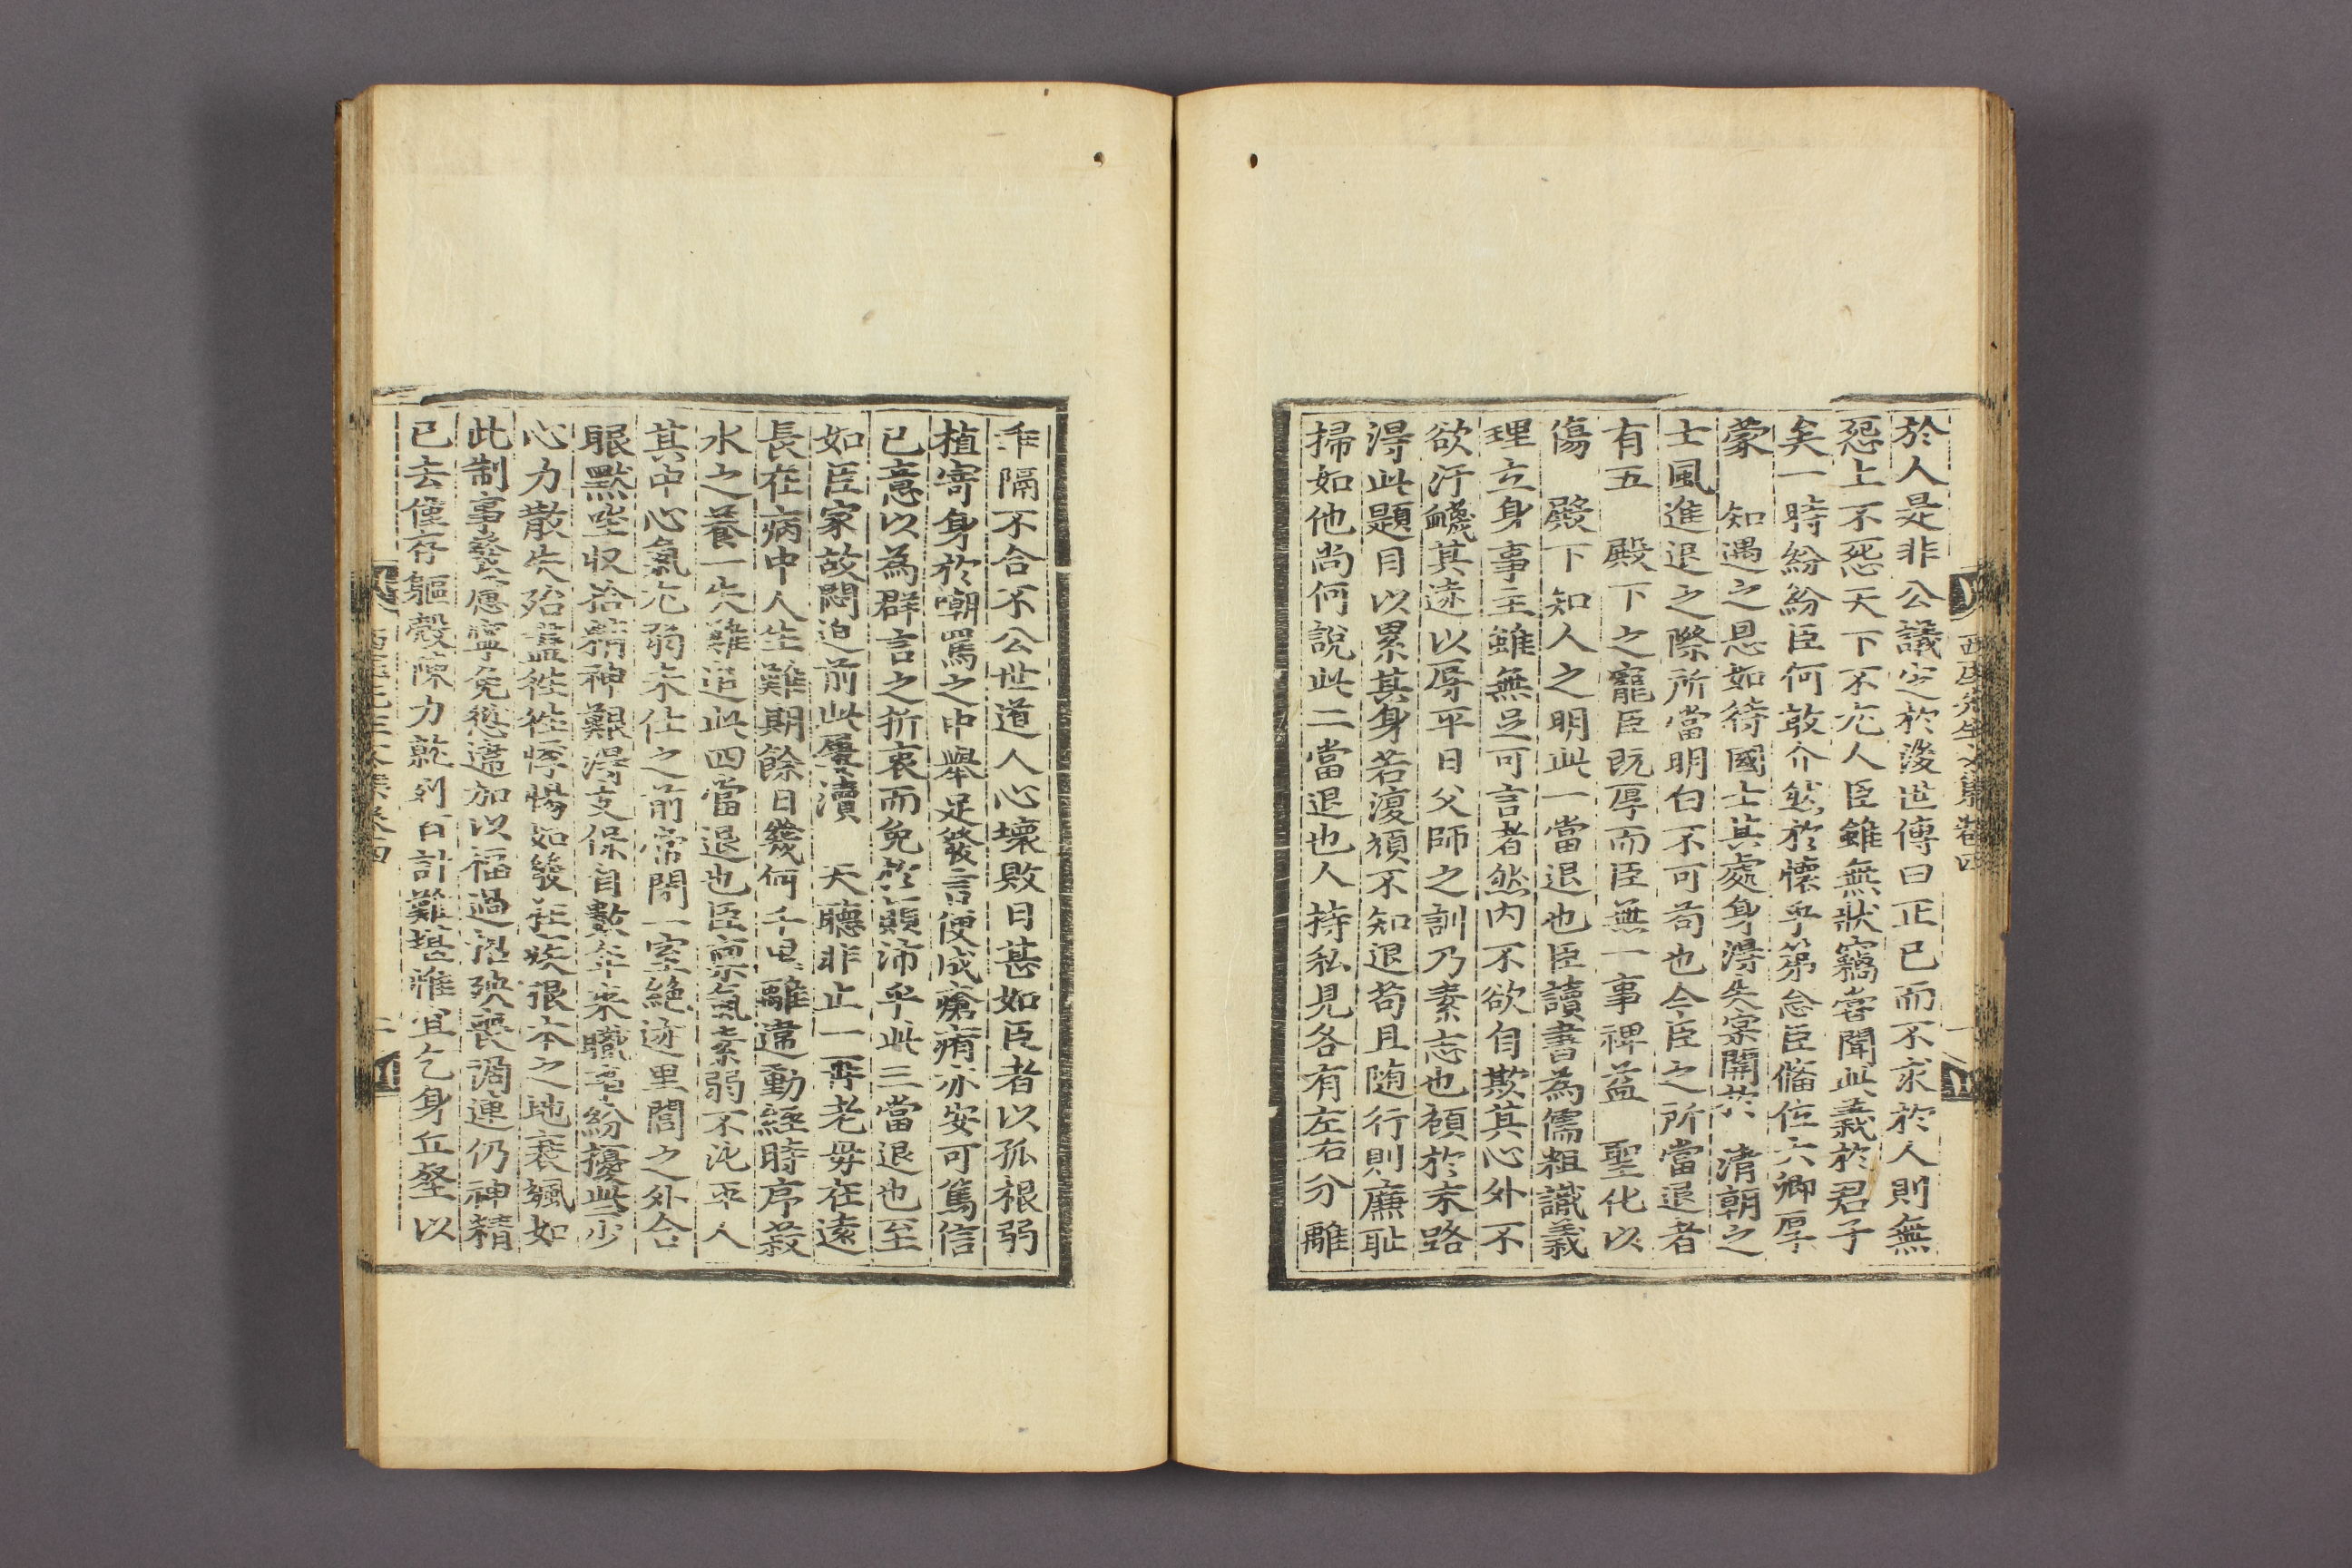 西厓先生文集卷四
一
於人是非公議定於後世傳曰正己而不求於人則無
怨上不怨天下不尤人臣雖無狀竊嘗聞此義於君子
矣一時紛紛臣何敢介然於懷乎第念臣備位六卿厚
蒙 知遇之恩如待國士其處身得失寔關於 清朝之
士風進退之際所當明白不可苟也今臣之所當退者
有五 殿下之寵臣旣厚而臣無一事裨益 聖化以
傷 殿下知人之明此一當退也臣讀書為儒粗識義
理立身事主雖無足可言者然內不欲自欺其心外不
欲汙衊其迹以辱平日父師之訓乃素志也顧於末路
得此題目以累其身若復頑不知退苟且随行則廉恥
掃如他尙何說此二當退也人持私見各有左右分離
乖隔不合不公世道人心壞敗日甚如臣者以孤根弱
植寄身於嘲罵之中舉足發言便成瘡痏亦安可篤信
己意以為群言之折衷而免於顚沛乎此三當退也至
如臣家故悶迫前此屢瀆 天聽非止一再老母在遠
長在病中人生難期餘日幾何千里離違動經時序菽
水之養一失難追此四當退也臣稟氣素弱不比平人
其中心氣尤弱未仕之前常閉一室絶迹里閭之外合
眼默坐収拾精神艱得支保自數年來職務紛擾些少
心力散失殆盡往往悸惕如發狂疾根本之地衰颯如
此制事發慮寧免愆違加以福過招殃喪凋連仍神精
已去僅存軀殼陳力就列百計難堪惟宜乞身丘壑以
二